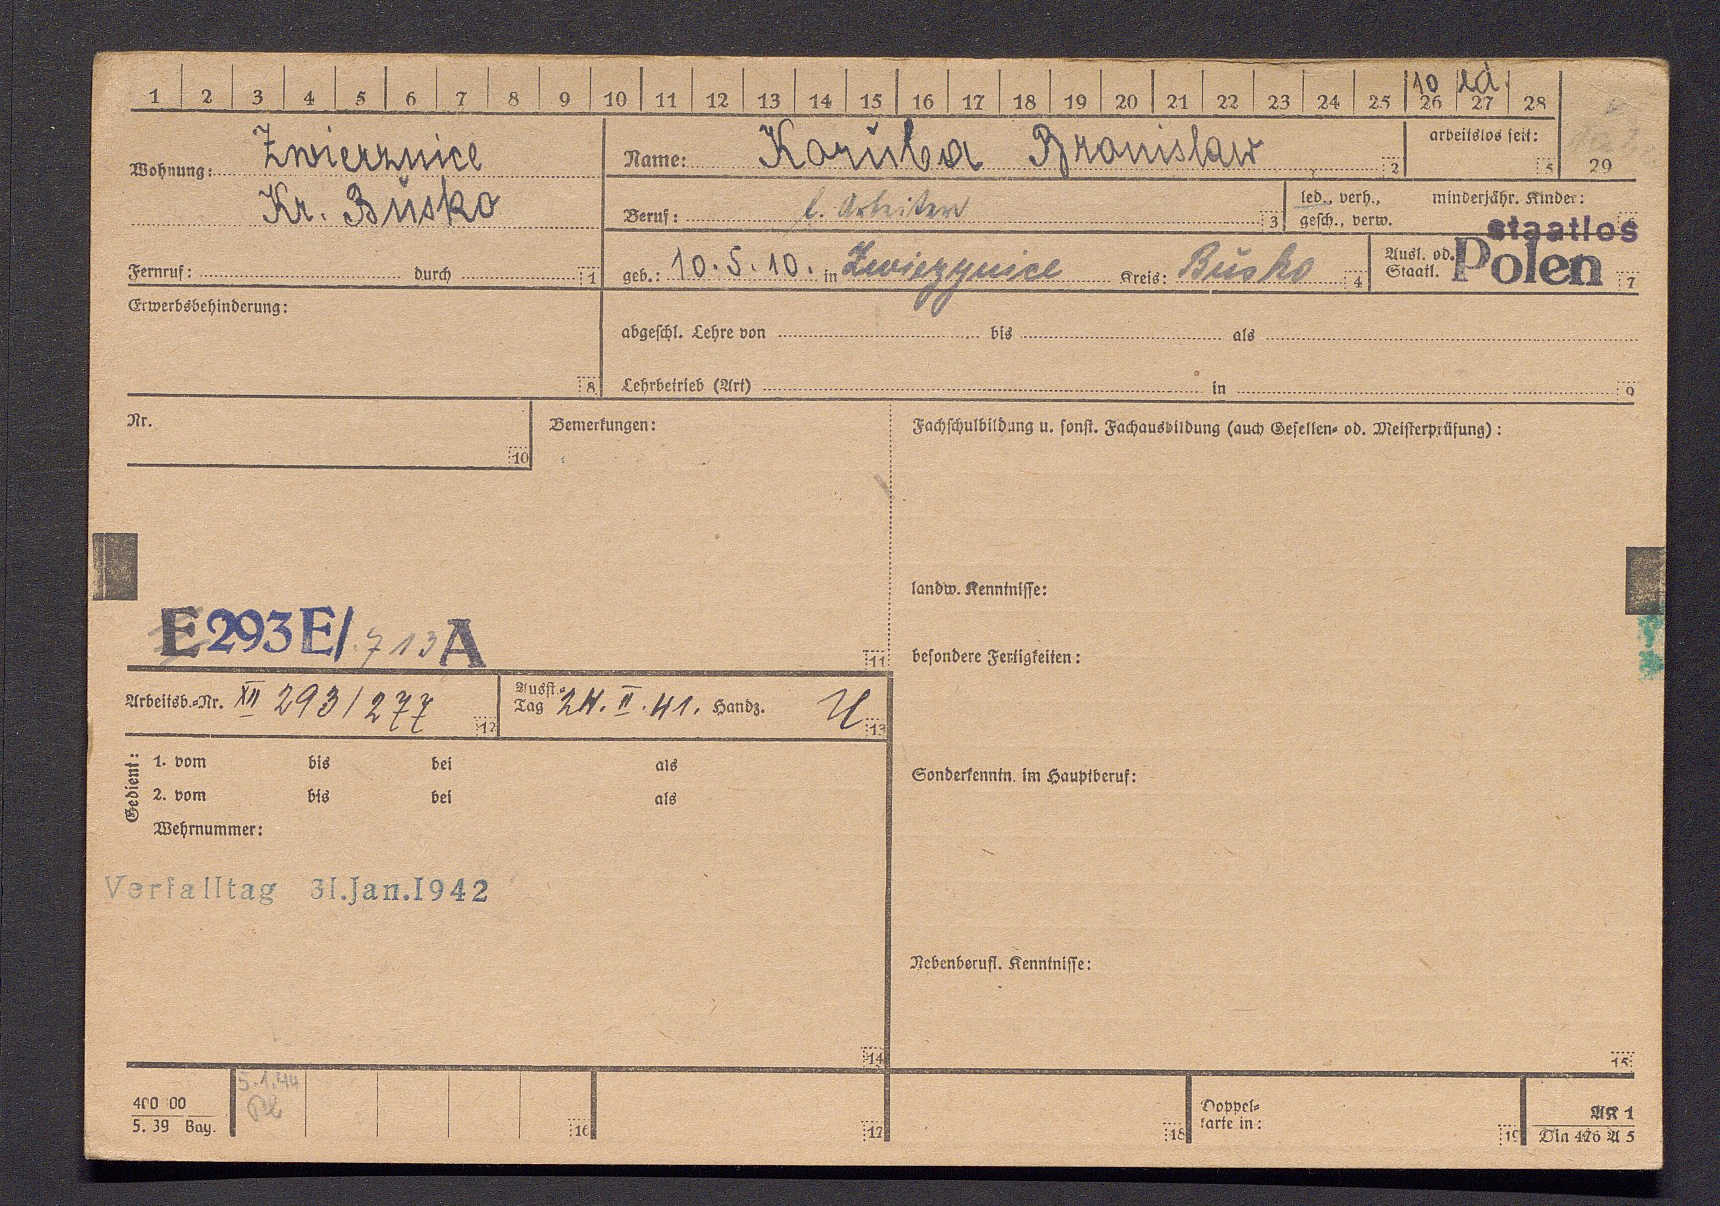 1 2 3 4 5 6 7 8 9 10 11 12 13 14 15 16 17 18 19 20 21 22 23 24 25 26 27 28 29
10
Wohnung: Zwierznice
Kr. Busko
Fernruf: durch 1
Name: Kozuba Bronislaw 2
arbeitslos seit: 5
Beruf: l. Arbeiter 3
led., verh.,
gesch., verw.
minderjähr. Kinder: 6
geb.: 10.5.10. in Zwierzynice Kreis: Busko 4
Ausl. od.
Staatl.
staatlos
Polen 7
Erwerbsbehinderung:
8
abgeschl. Lehre von bis als
Lehrbetrieb (Art) in 9
Nr.
10
Bemerkungen:
Fachschulbildung u. sonst. Fachausbildung (auch Gesellen- od. Meisterprüfung):
landw. Kenntnisse:
E293E/713A
besondere Fertigkeiten:
11
Arbeitsb.-Nr. XII 293/277 12
Ausst.-
Tag 24.II.41. Handz. 13
Gedient:
1. vom bis bei als
2. vom bis bei als
Wehrnummer:
Sonderkenntn. im Hauptberuf:
Verfalltag 31.Jan.1942
Nebenberufl. Kenntnisse:
14
15
400 00
5. 39 Bay.
5.1.44
16
17
18
Doppel-
karte in:
19
AK 1
Din 476 A 5